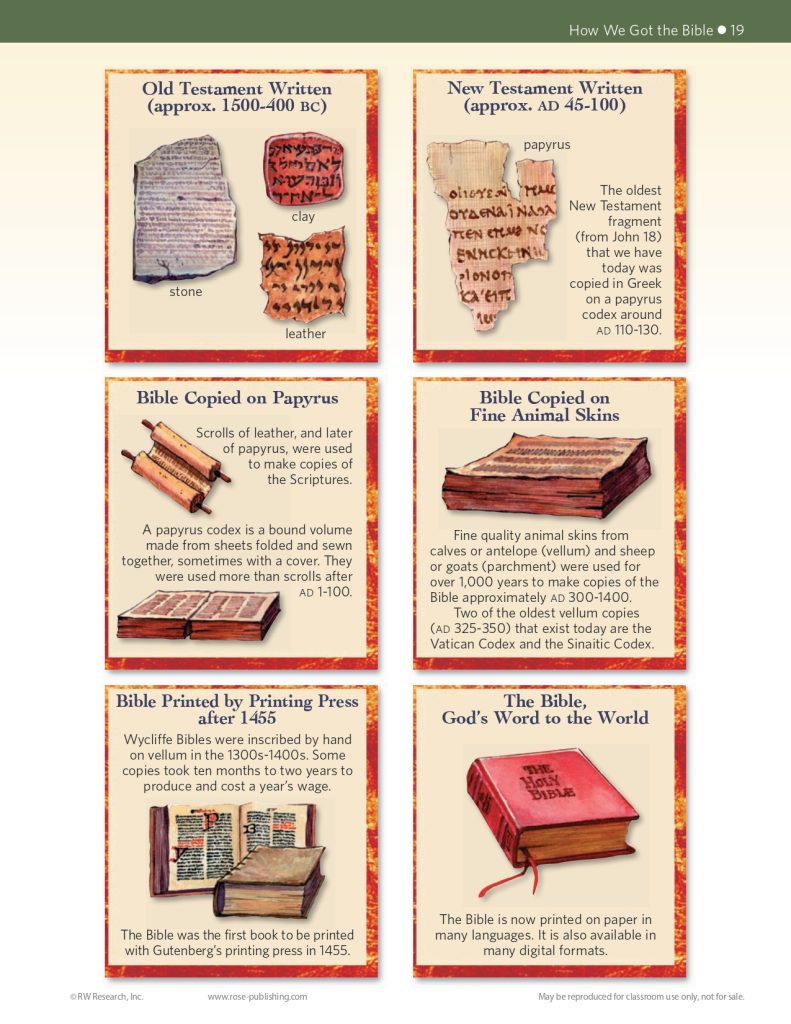 How We Got the Bible ● 19
Old Testament Written
(approx. 1500-400 BC)
clay
stone
leather
New Testament Written
(approx. AD 45-100)
papyrus
The oldest
New Testament
fragment
(from John 18)
that we have
today was
copied in Greek
on a papyrus
codex around
AD 110-130.
Bible Copied on Papyrus
Scrolls of leather, and later
of papyrus, were used
to make copies of
the Scriptures.
A papyrus codex is a bound volume
made from sheets folded and sewn
together, sometimes with a cover. They
were used more than scrolls after
AD 1-100.
Bible Copied on
Fine Animal Skins
Fine quality animal skins from
calves or antelope (vellum) and sheep
or goats (parchment) were used for
over 1,000 years to make copies of the
Bible approximately AD 300-1400.
Two of the oldest vellum copies
(AD 325-350) that exist today are the
Vatican Codex and the Sinaitic Codex.
Bible Printed by Printing Press
after 1455
Wycliffe Bibles were inscribed by hand
on vellum in the 1300s-1400s. Some
copies took ten months to two years to
produce and cost a year's wage.
The Bible was the first book to be printed
with Gutenberg's printing press in 1455.
The Bible,
God's Word to the World
THE
HOLY
BIBLE
The Bible is now printed on paper in
many languages. It is also available in
many digital formats.
© RW Research, Inc.
www.rose-publishing.com
May be reproduced for classroom use only, not for sale.